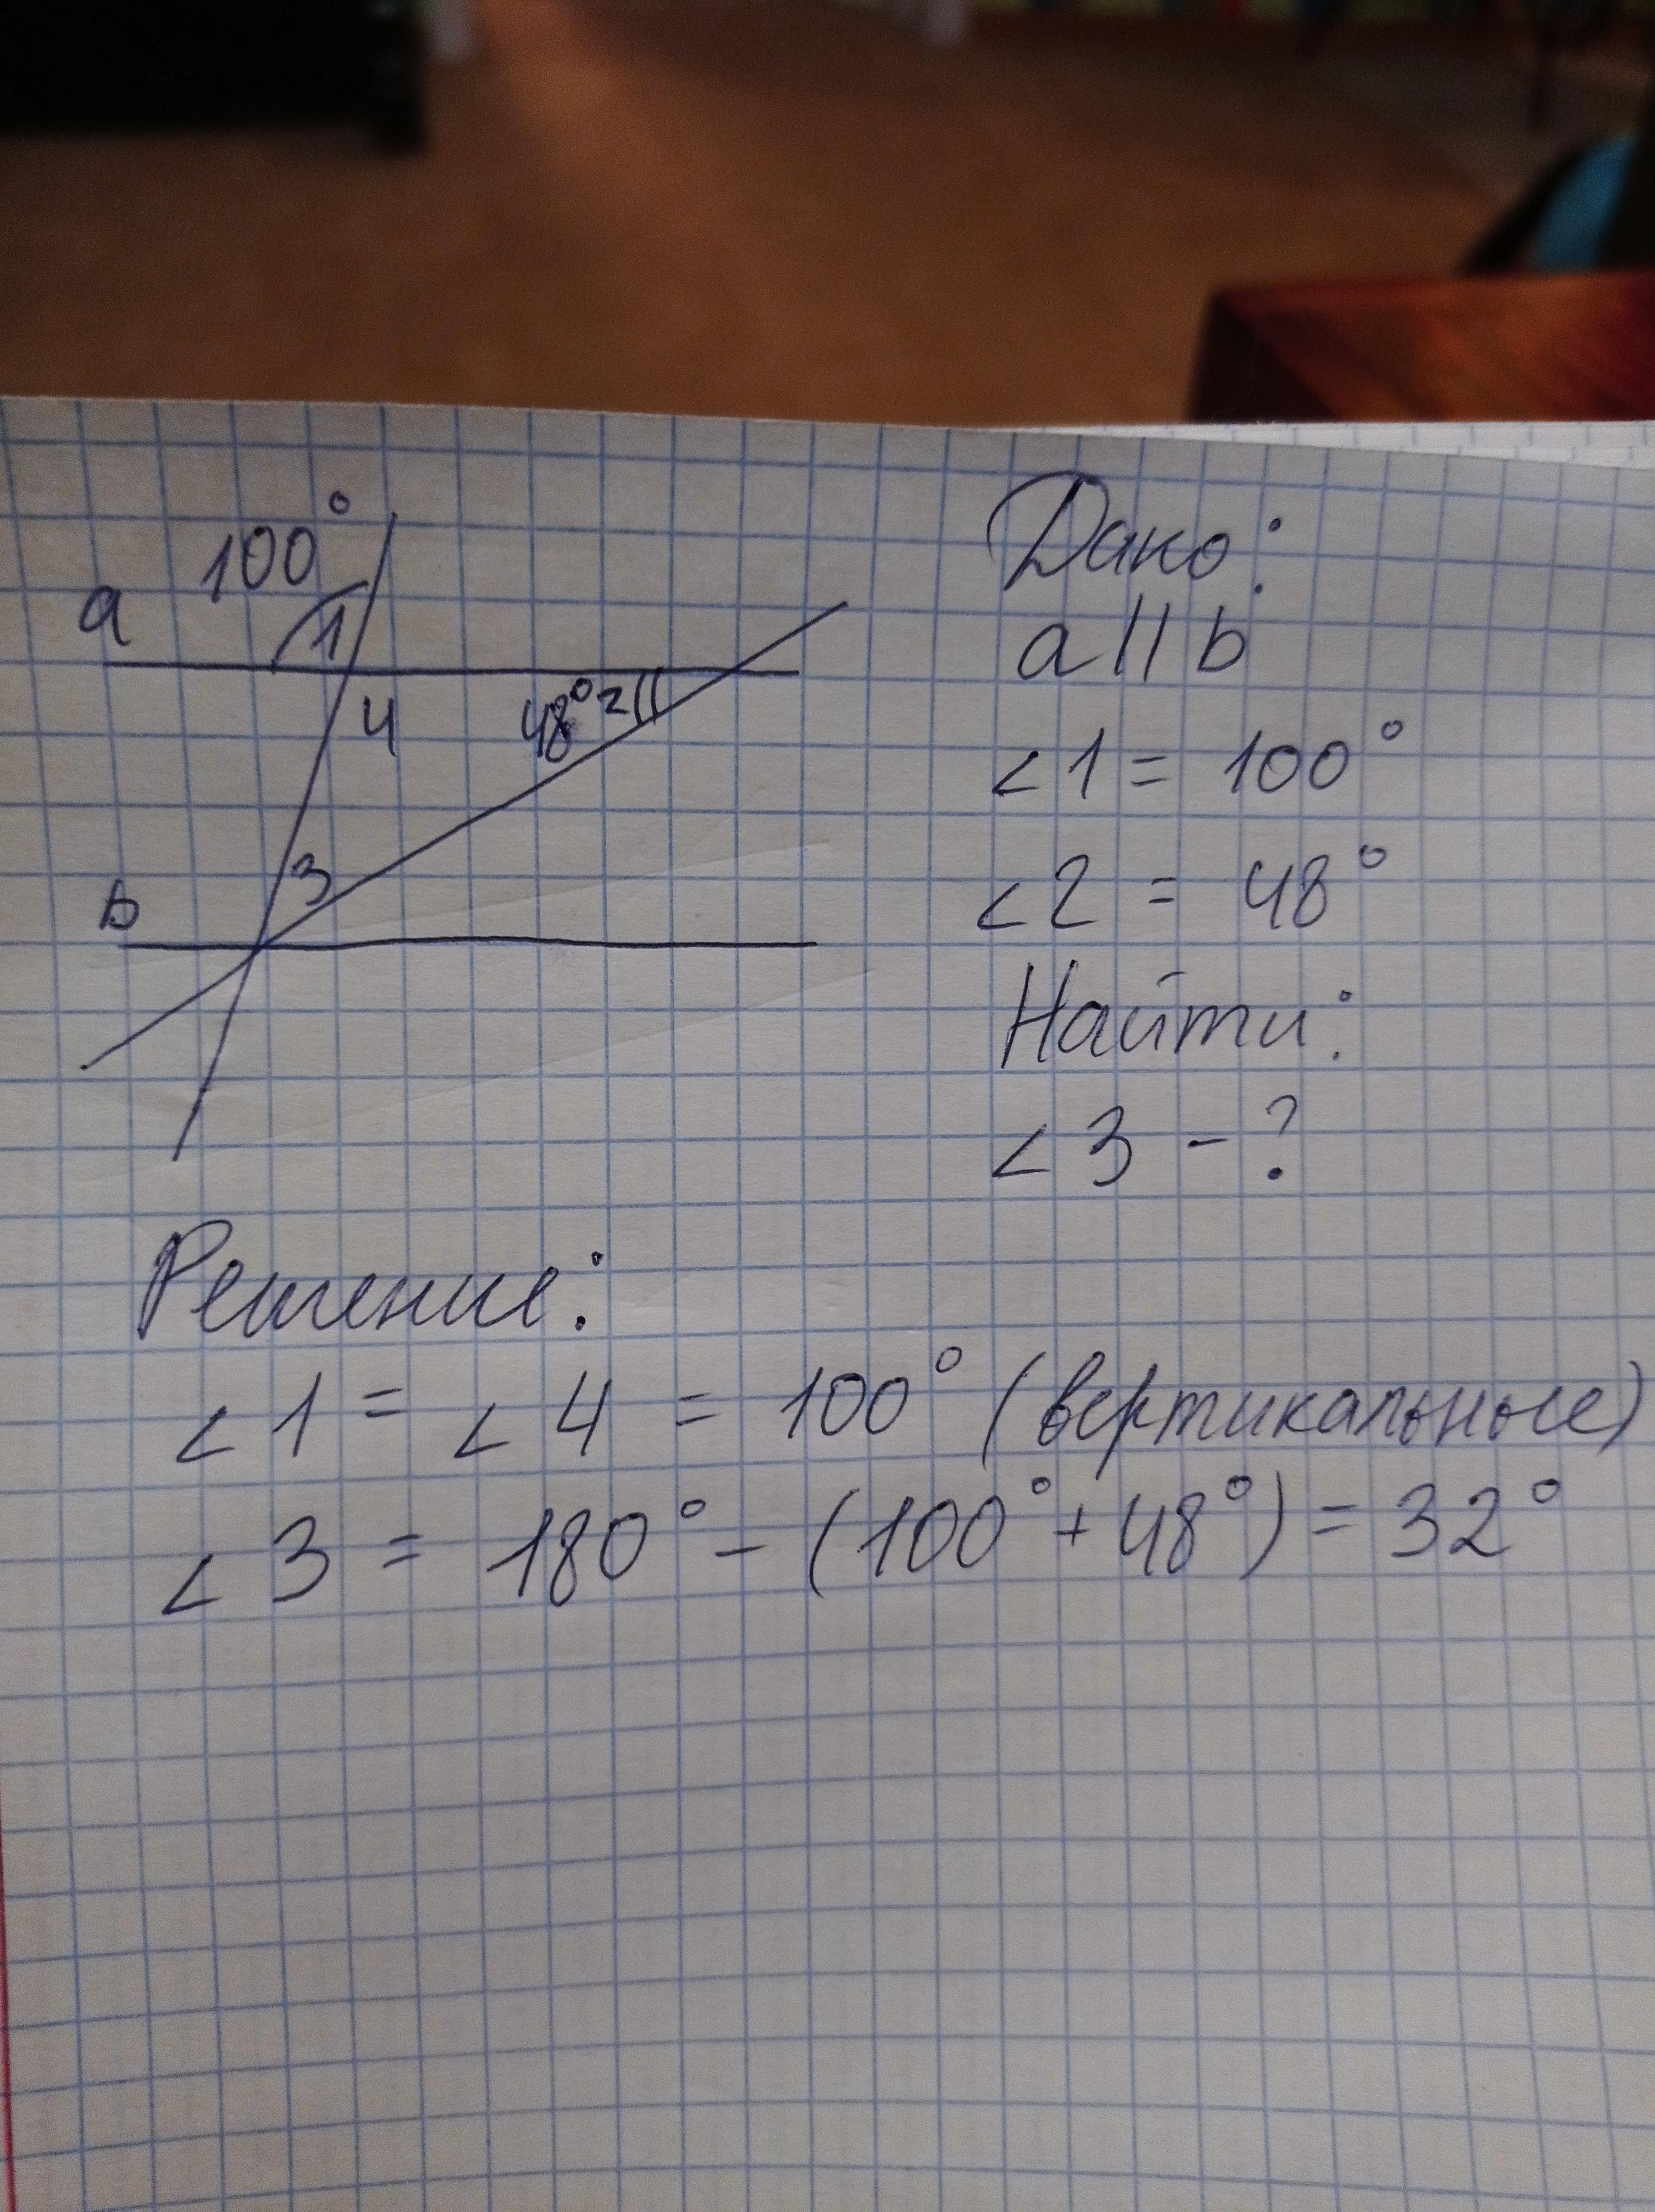 100°
a
1
4
48°
2
3
b
Дано:
a || b
∠1 = 100°
∠2 = 48°
Найти:
∠3 - ?
Решение:
∠1 = ∠4 = 100° (вертикальные)
∠3 = 180° - (100° + 48°) = 32°